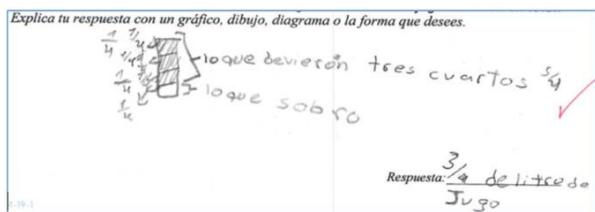 Explica tu respuesta con un gráfico, dibujo, diagrama o la forma que desees.
1/4 1/4
1/4 lo que devierón tres cuartos 3/4
1/4 lo que sobro
1/4
Respuesta: 3/4 de litro de
Jugo